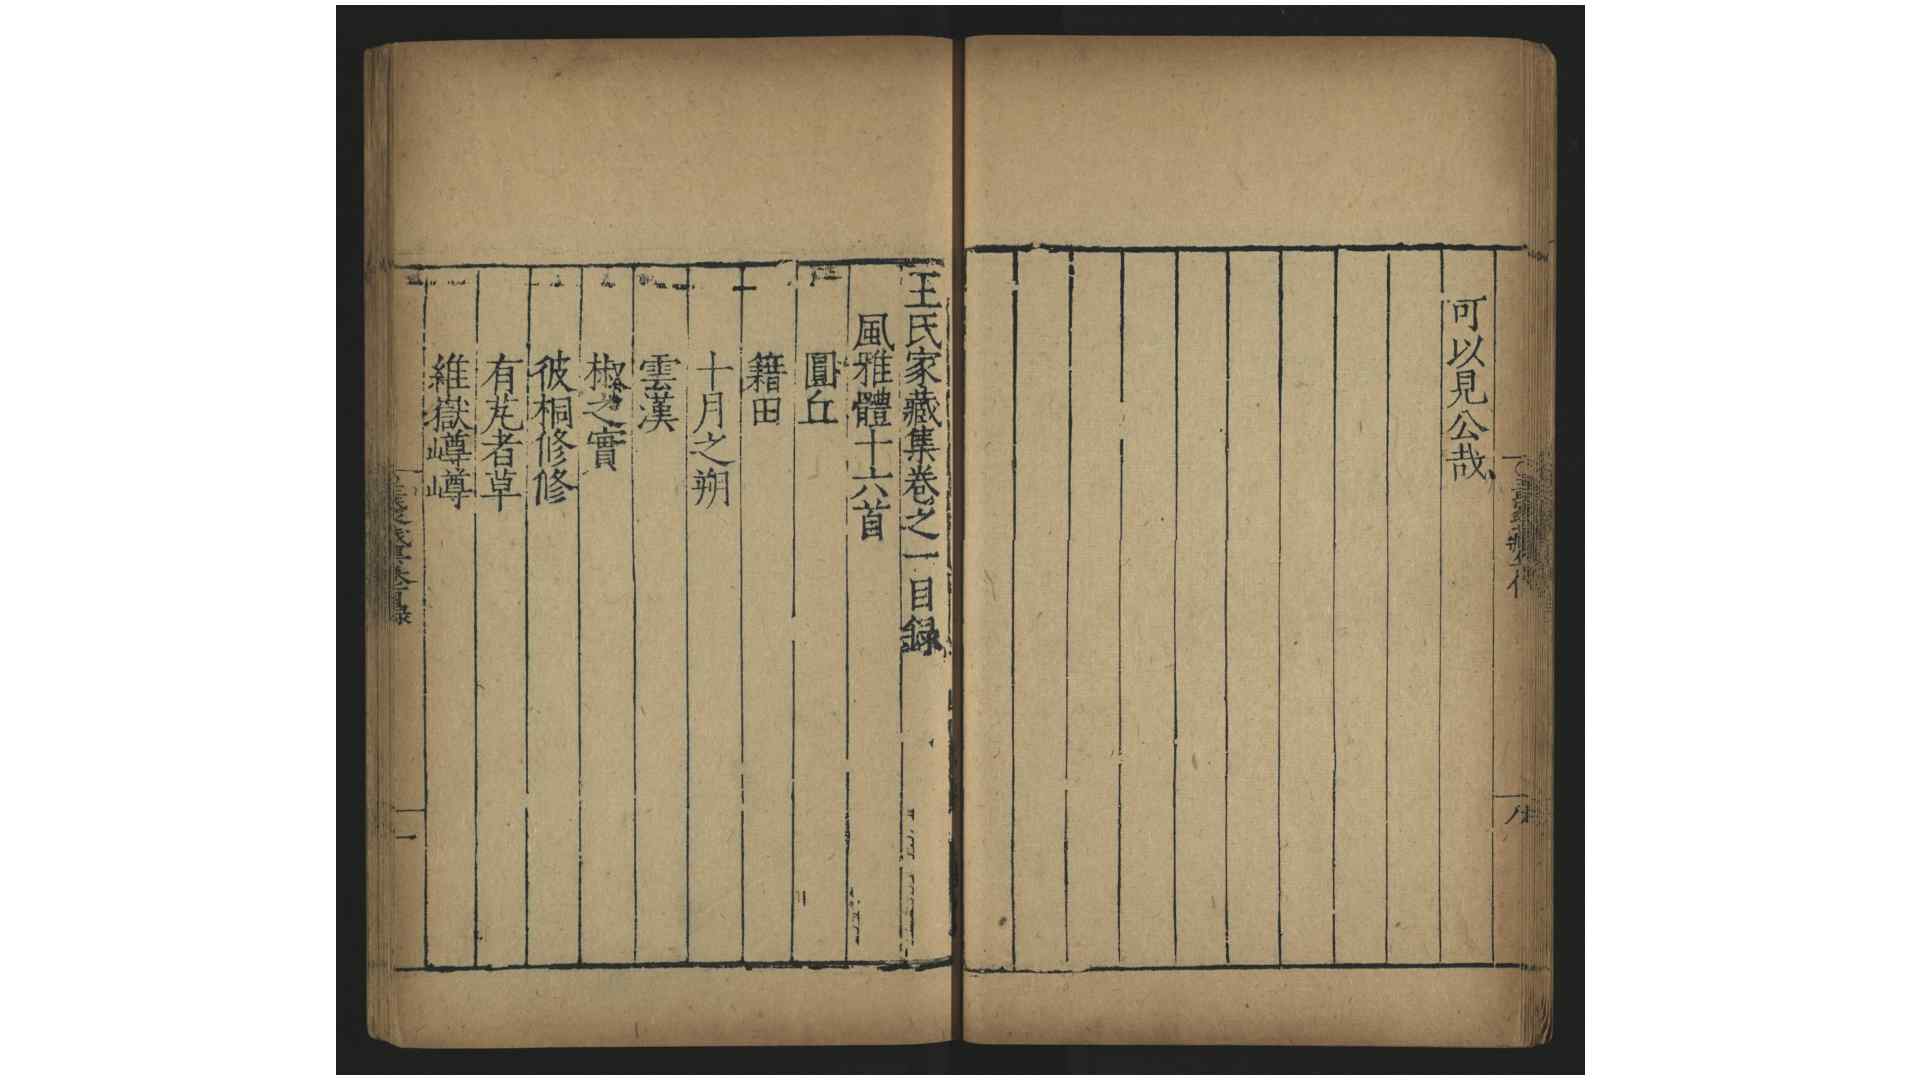 可以見公哉
王氏家藏集卷之一目録
風雅體十六首
圓丘
籍田
十月之朔
雲漢
椒之實
彼桐修修
有芃者草
維嶽嶟嶟
一